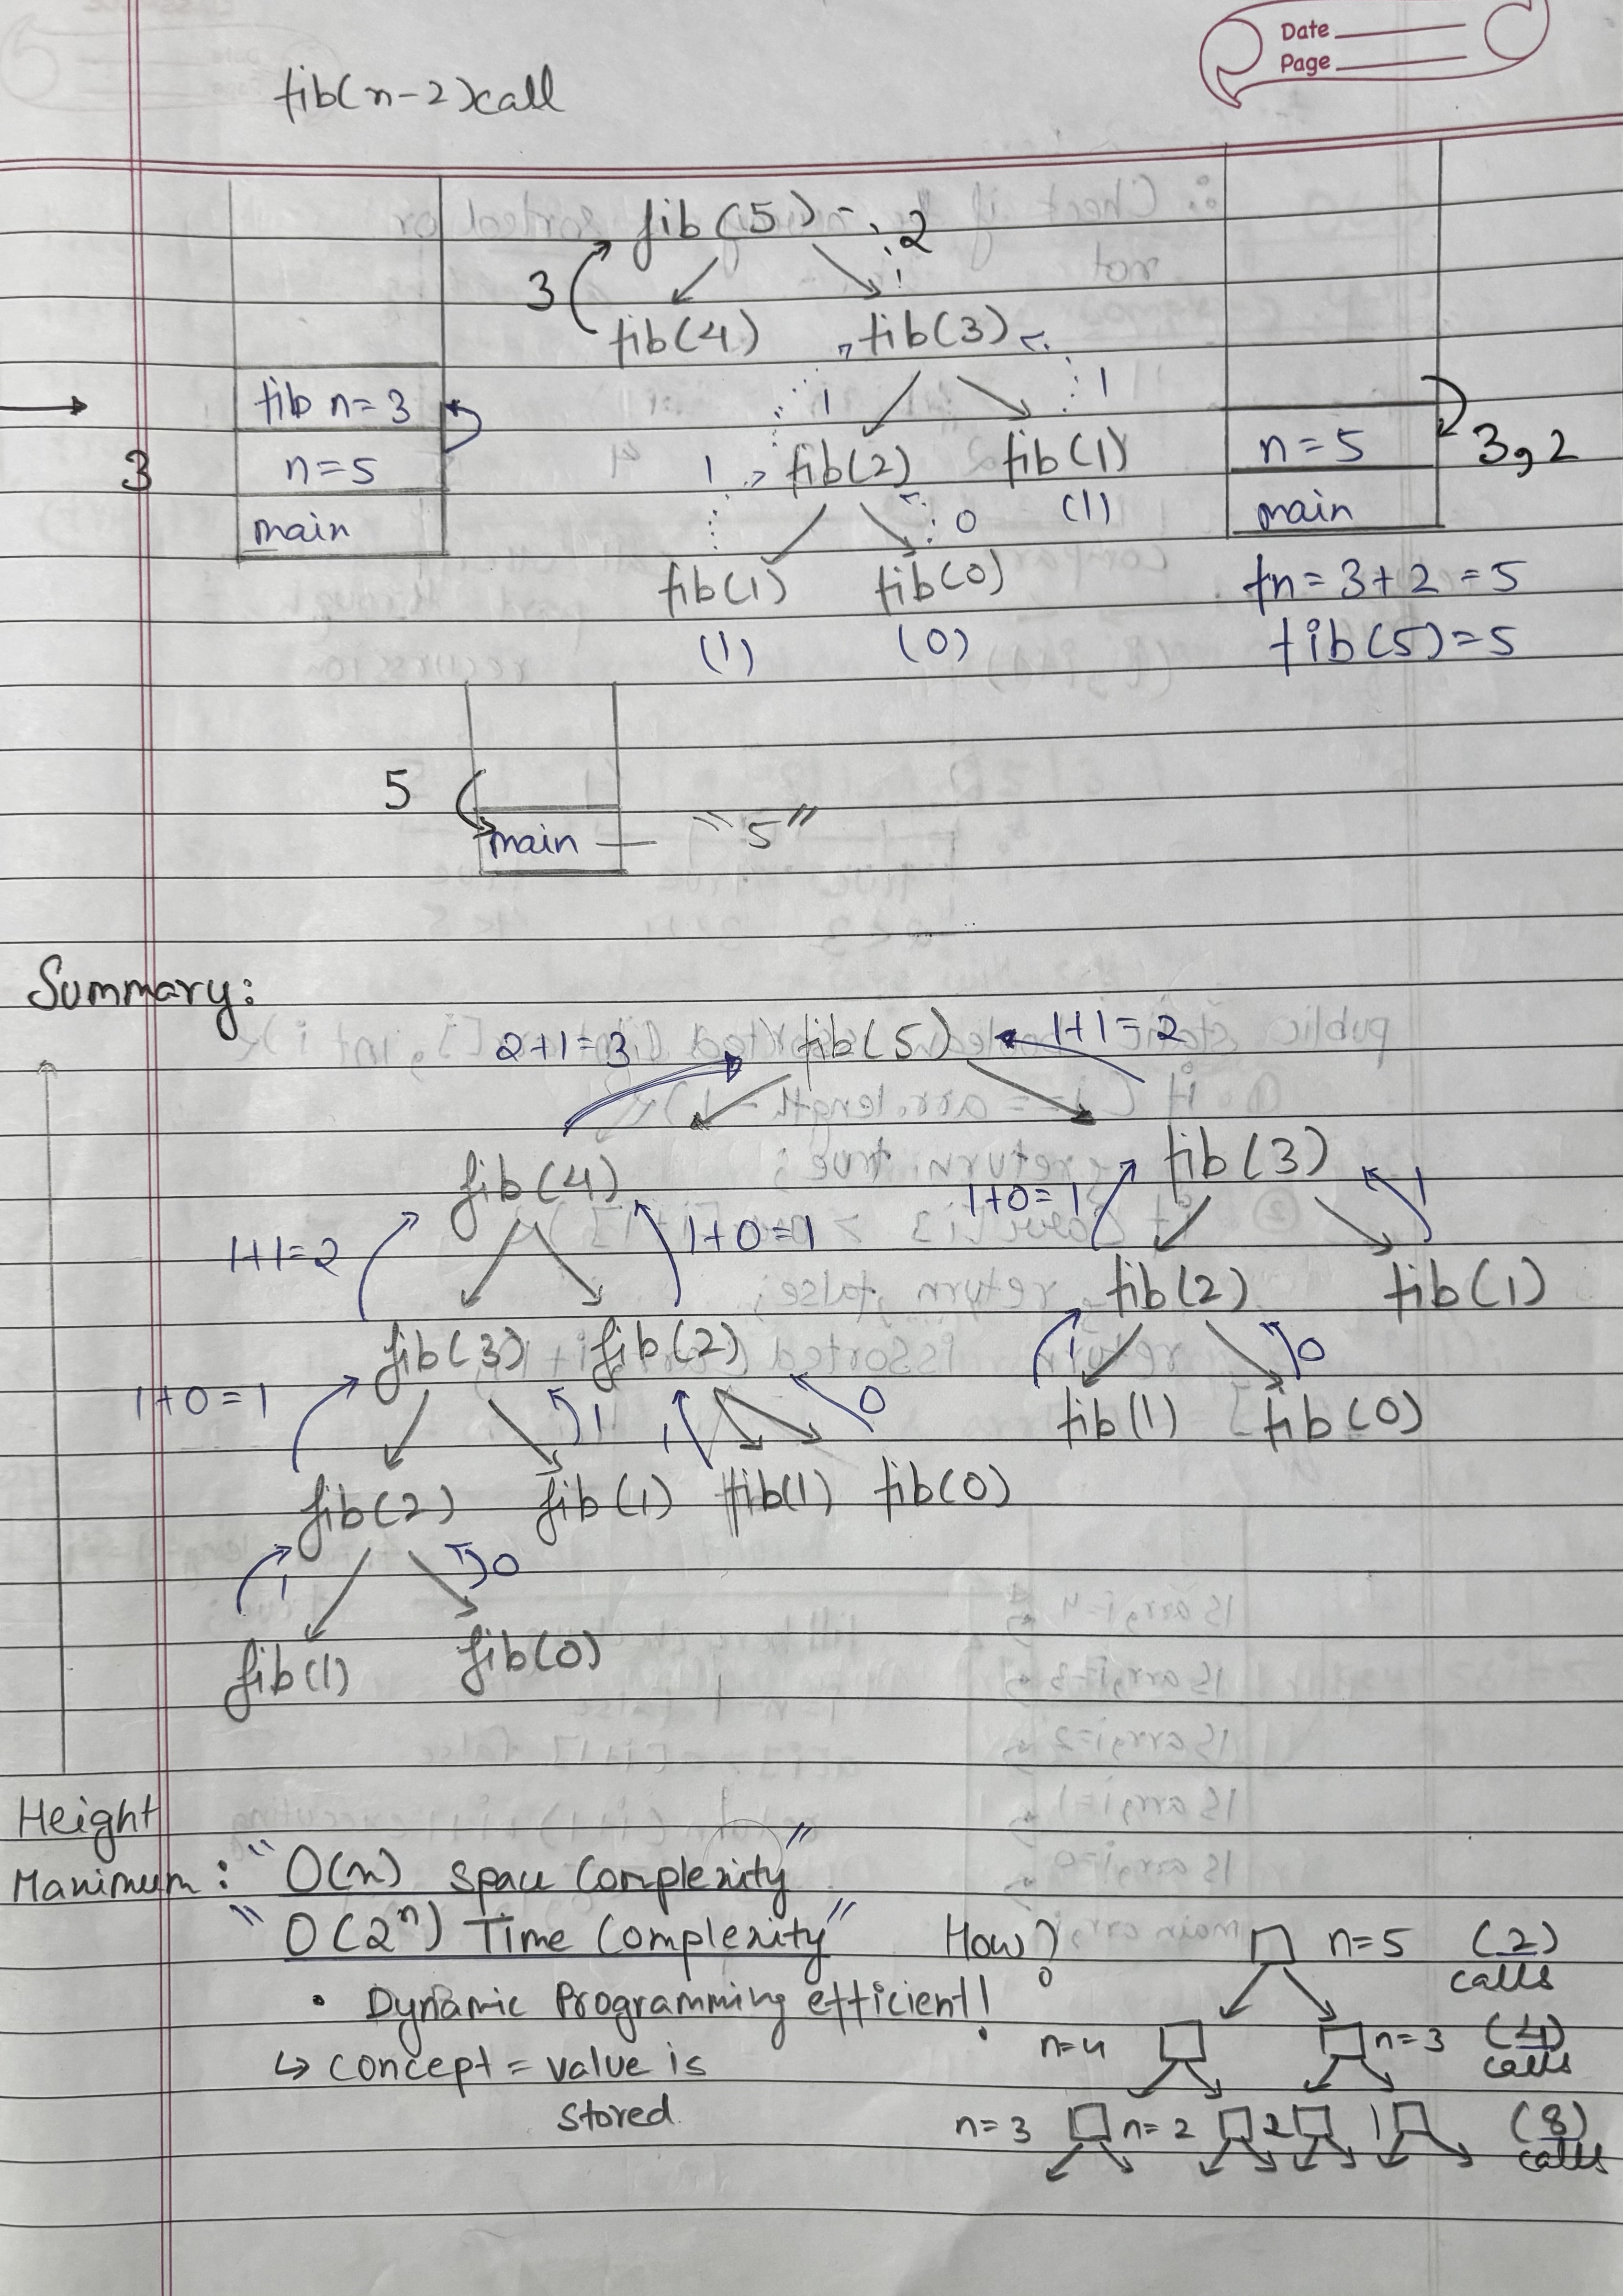 Date
Page
fib(n-2) call
fib(5) 2
3
fib(4) fib(3)
1 1
fib n=3
n=5
main
3
1 fib(2) fib(1)
0 (1)
fib(1) fib(0)
(1) (0)
n=5
main
3,2
fn = 3+2 = 5
fib(5) = 5
5
main — "5"
Summary:
2+1=3 fib(5) 1+1=2
fib(4) fib(3)
1+1=2 1+0=1 1+0=1 1
fib(3) fib(2) fib(2) fib(1)
1+0=1 1 1 0 1 0
fib(2) fib(1) fib(1) fib(0) fib(1) fib(0)
1 0
fib(1) fib(0)
Height
Maximum: "O(n) Space Complexity"
"O(2ⁿ) Time Complexity"
• Dynamic Programming efficient!
↳ concept = value is
stored
How?
n=5 (2) calls
n=4 n=3 (4) calls
n=3 n=2 2 1 (8) calls